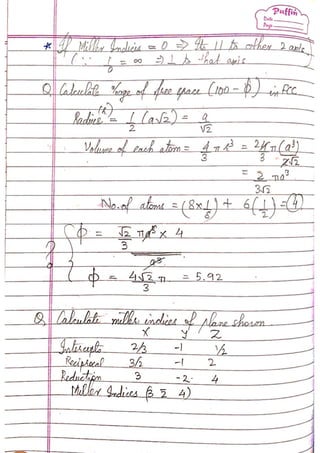 Puffin
Date
Page
* If Miller Indices = 0 => Its || to other 2 axis
(∵ 1/0 = ∞ => ⊥ to that axis
Q Calculate %age of free space (100 - ϕ) in FCC
Radius (r) = 1/2 (a√2) = a/√2
Volume of each atom = 4/3 π r³ = 24π/3 (a³)/2√2
= 2/3√2 πa³
No. of atoms = (8×1/8) + 6(1/2) = 4
? ϕ = √2/3 πa³ × 4
a³
ϕ = 4√2/3 π = 5.92
Q Calculate miller indices of plane shown
X Y Z
Intercepts 2/3 -1 1/2
Reciprocal 3/2 -1 2
Reduction 3 -2 4
Miller Indices (3 2̅ 4)